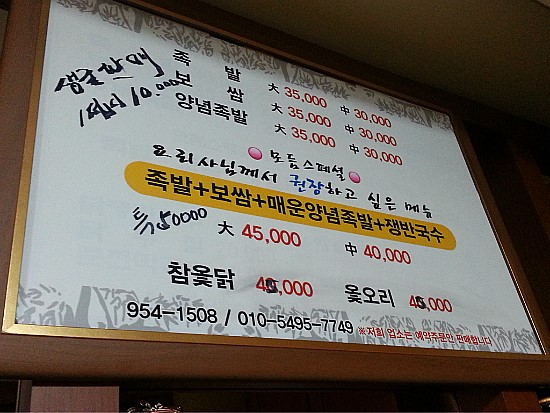 생굴판매
1접시 10.000
족 발 大 35,000 中 30,000
보 쌈 大 35,000 中 30,000
양념족발 大 35,000 中 30,000
모듬스페셜
요리사님께서 권장하고 싶은 메뉴
족발+보쌈+매운양념족발+쟁반국수
특 50000 大 45,000 中 40,000
참옻닭 45,000 옻오리 45,000
954-1508 / 010-5495-7749 ※저희 업소는 예약주문만 판매합니다